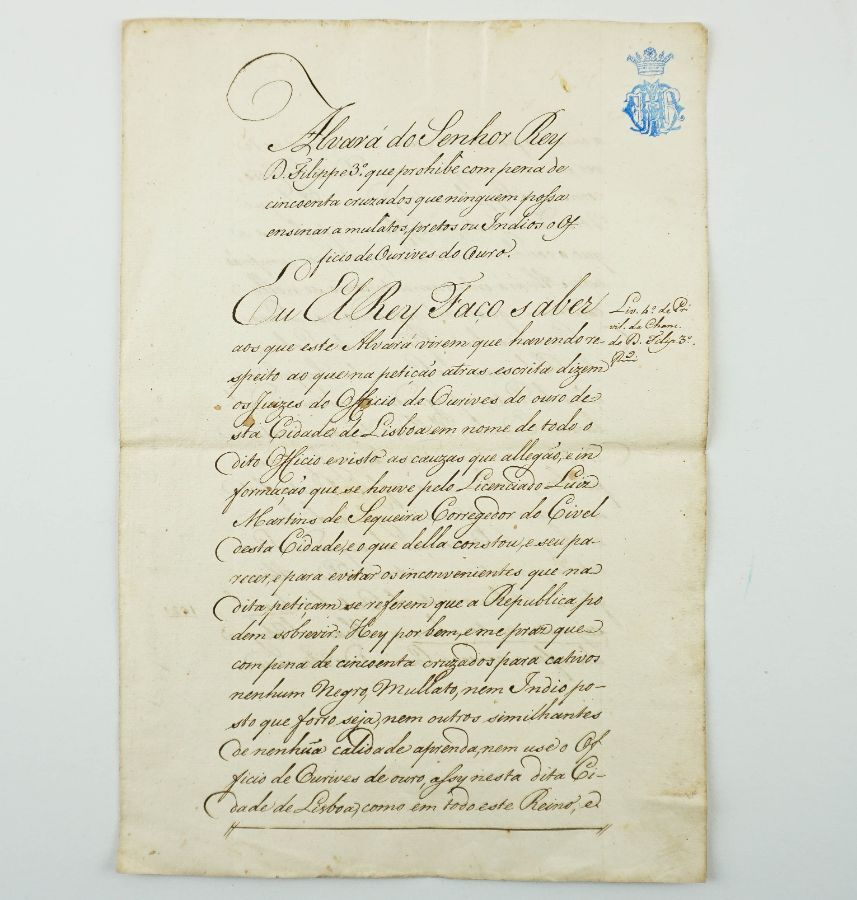 Alvará do Senhor Rey
D. Filippe 3.º que prohibe com pena de
cincoenta cruzados que ninguem possa
ensinar a mulatos, pretos ou Indios o Of
ficio de Ourives do Ouro.
Eu El Rey Faço saber
aos que este Alvará virem que havendo re-
speito ao que na petição atras escrita dizem
os Juizes do Officio de Ourives do ouro de
sta Cidade de Lisboa, em nome de todo o
dito Officio e visto as cauzas que allegão, e in
formação que se houve pelo Licenciado Luiz
Martins de Sequeira Corregedor do Civel
desta Cidade, e o que della constou, e seu pa-
recer, e para evitar os inconvenientes que na
dita petiçam se referem que a Republica po
dem sobrevir: Hey por bem, e me praz que
com pena de cincoenta cruzados para cativos
nenhum Negro, Mullato, nem Indio, po-
sto que forro seja, nem outros similhantes
de nenhuã calidade aprenda, nem use o Of
ficio de Ourives de ouro, assy nesta dita Ci-
dade de Lisboa, como em todo este Reino, e
Liv. 4.º de Pri
vil. da Chanc.
de D. Filip 3.º